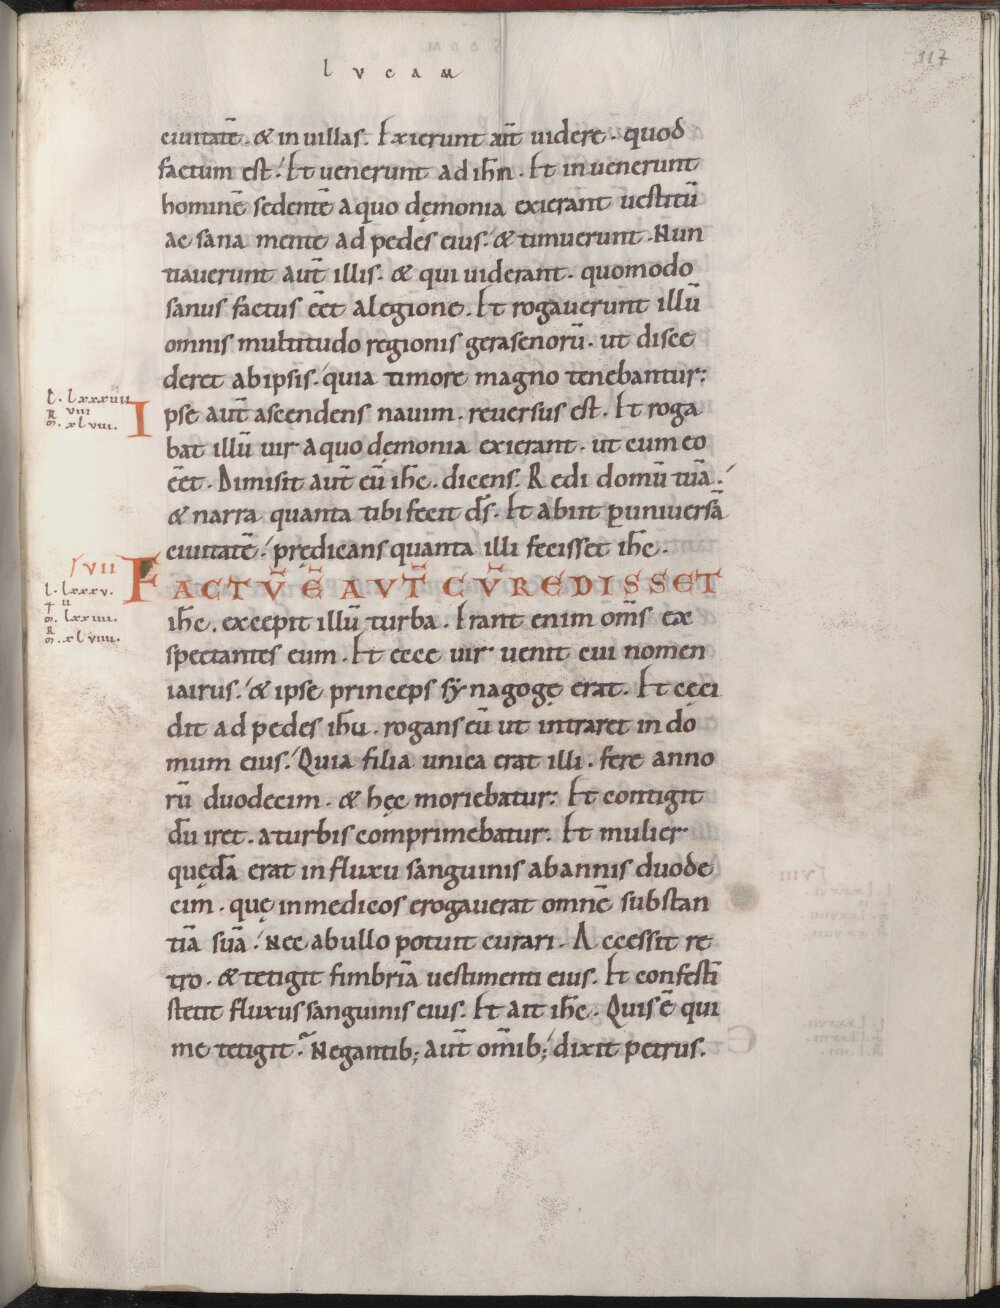 lvcam
117
ciuitatē. & in uillas. Exierunt aūt uidere. quod
factum est. Et uenerunt ad ihm̄. Et inuenerunt
hominē sedentē a quo dęmonia exierant uestitū
ac sana mente ad pedes eius. & timuerunt. Nun
tiauerunt aūt illis. & qui uiderant. quomodo
sanus factus eēt a legione. Et rogauerunt illū
omnis multitudo regionis gerasenorū. ut disce
deret ab ipsis. quia timore magno tenebantur:
Ipse aūt ascendens nauim. reuersus est. Et roga
bat illū uir a quo dęmonia exierant. ut cum eo
eēt. Dimisit aūt eū ihc̄. dicens. Redi domū tuā.
& narra quanta tibi fecit d̄s. Et abiit ꝑ uniuersā
ciuitatē. prędicans quanta illi fecisset ihc̄.
l. lxxxvii.
viii
xlviii.
VII
FACTV̄ Ē AVT̄ CV̄ REDISSET
l. lxxxv.
ii
lxxiiii.
xlviiii.
ihc̄. excepit illū turba. Erant enim om̄s ex
spectantes eum. Et ecce uir uenit cui nomen
iairus. & ipse princeps synagogę erat. Et ceci
dit ad pedes ihū. rogans eū ut intraret in do
mum eius. Quia filia unica erat illi. fere anno
rū duodecim. & hęc moriebatur: Et contigit
dū iret. a turbis comprimebatur. Et mulier
quędā erat in fluxu sanguinis ab annis duode
cim. quę in medicos erogauerat omnē substan
tiā suā. Nec ab ullo potuit curari. Accessit re
tro. & tetigit fimbriā uestimenti eius. Et confestī
stetit fluxus sanguinis eius. Et ait ihc̄. Quis ē qui
me tetigit. Negantib; aūt om̄ib; dixit petrus.